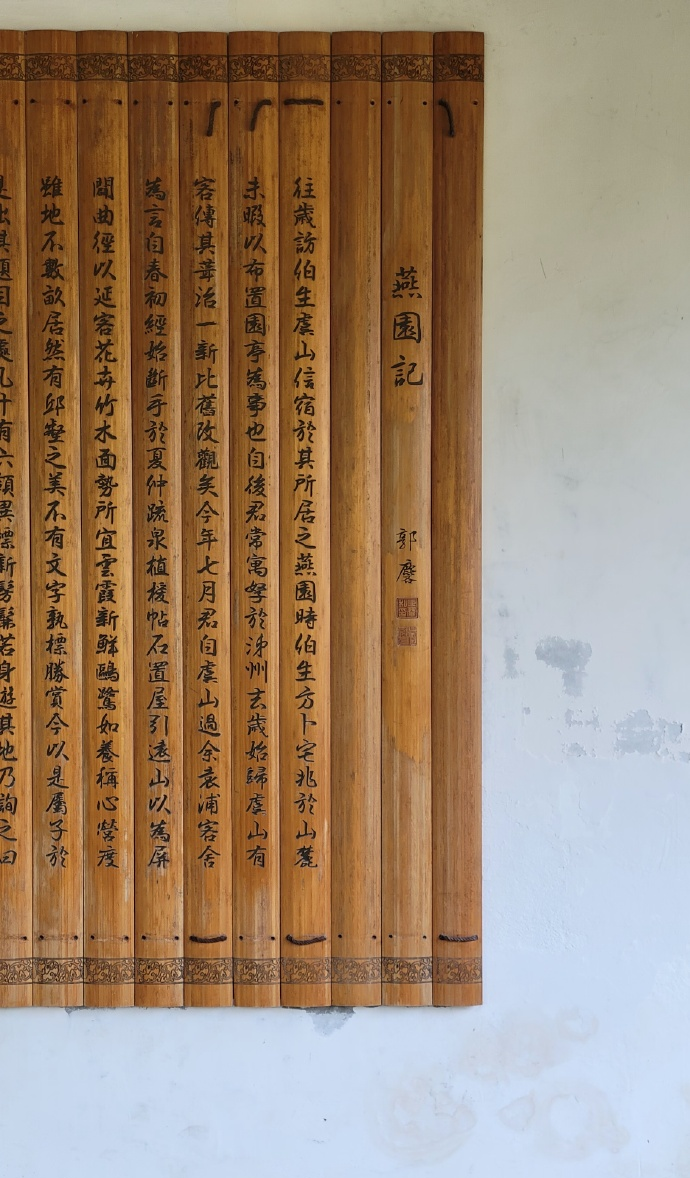 燕園記
郭麐
往歲訪伯生虞山信宿於其所居之燕園時伯生方卜宅兆於山麓
未暇以布置園亭為事也自後君常寓孥於泲州去歲始歸虞山有
客傳其葺治一新比舊改觀矣今年七月君自虞山過余袁浦客舍
為言自春初經始斷手於夏仲疏泉植援帖石置屋引遠山以為屏
開曲徑以延客花卉竹水面勢所宜雲霞新鮮鷗鷺如養稱心營度
雖地不數畝居然有邱壑之美不有文字孰標勝賞今以是屬子於
是出其題目之處凡十有六領異標新髣髴若身遊其地乃詢之曰